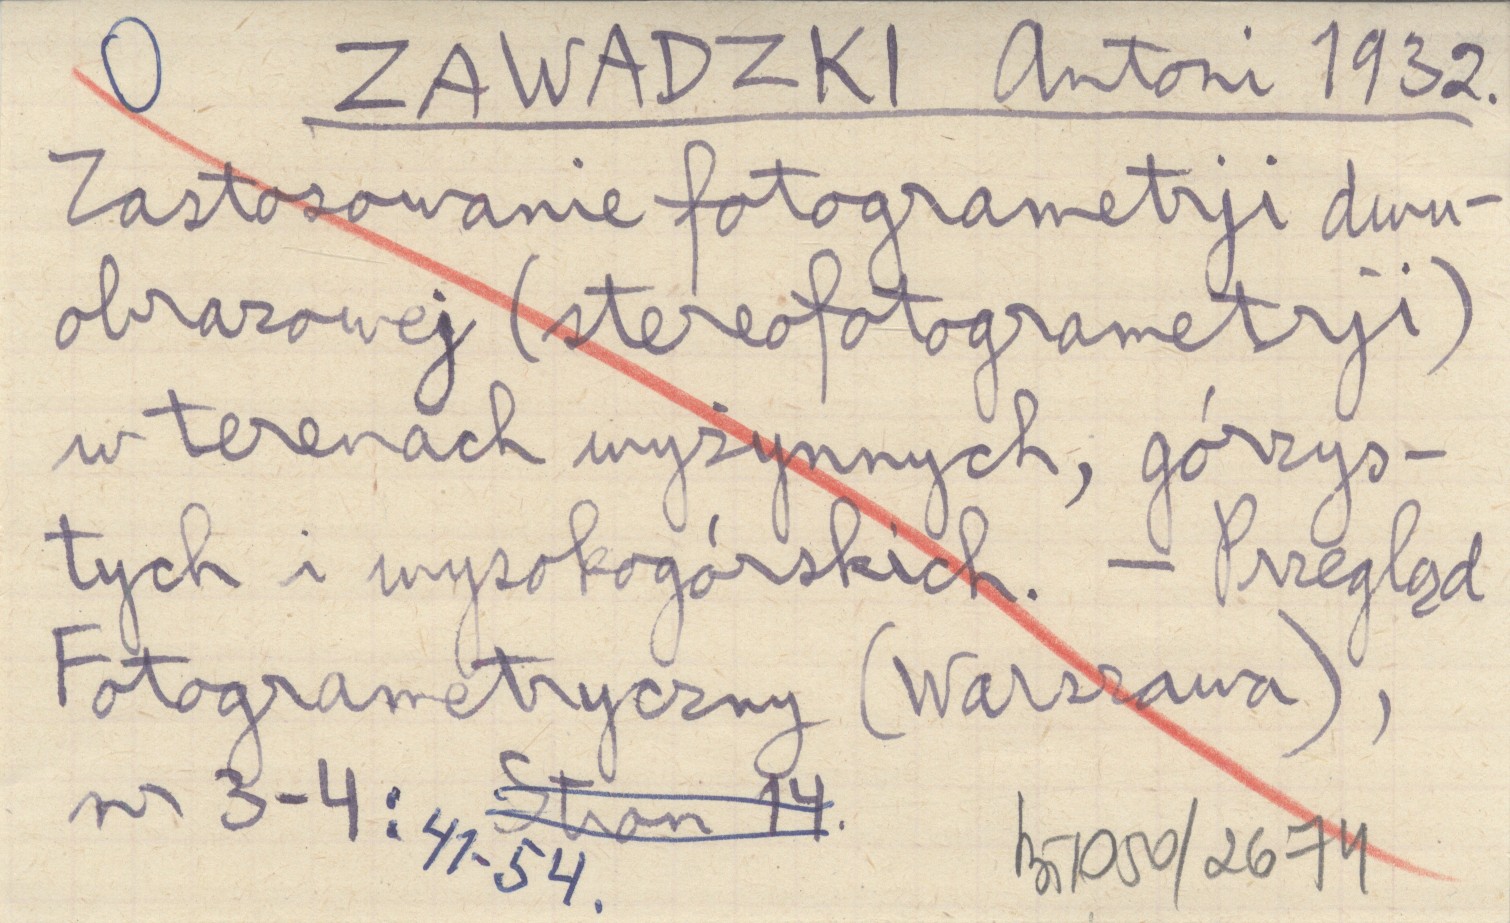 O ZAWADZKI Antoni 1932.
Zastosowanie fotogrametrji dwu-
obrazowej (stereofotogrametrji)
w terenach wyżynnych, górzys-
tych i wysokogórskich. — Przegląd
Fotogrametryczny (Warszawa),
nr 3-4: Stron 14.
41-54.
1050/2674